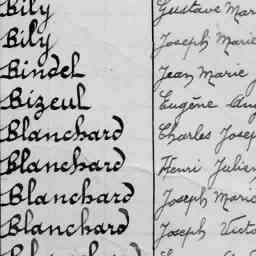 Bily Gustave Mar
Bily Joseph Marie
Bindel Jean Marie J
Bizeul Eugène Aug
Blanchard Charles Josep
Blanchard Henri Julien
Blanchard Joseph Marie
Blanchard Joseph Victo
Blanchard